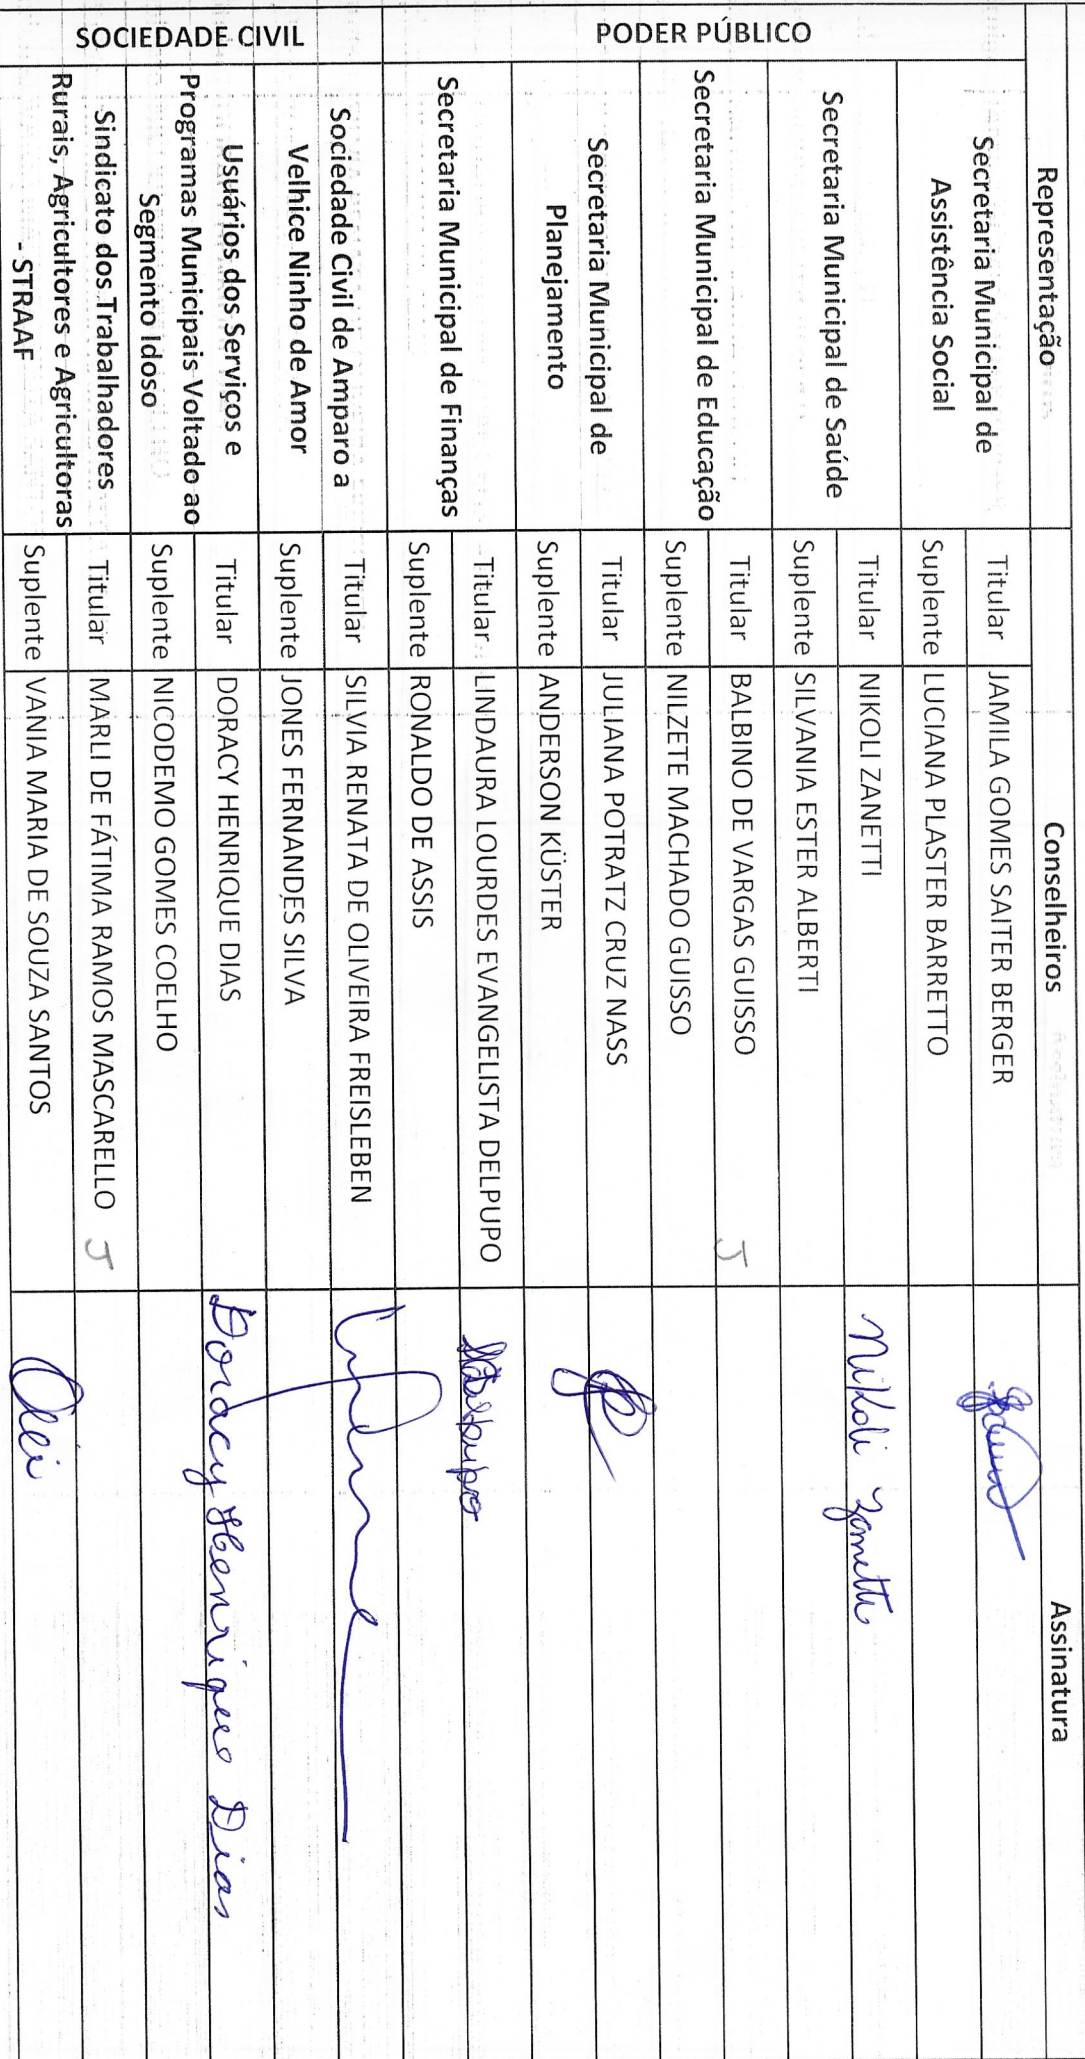 Representação Conselheiros Assinatura
PODER PÚBLICO
Secretaria Municipal de
Assistência Social
Titular JAMILA GOMES SAITER BERGER
Suplente LUCIANA PLASTER BARRETTO
Secretaria Municipal de Saúde
Titular NIKOLI ZANETTI Nikoli Zanetti
Suplente SILVANIA ESTER ALBERTI
Secretaria Municipal de Educação
Titular BALBINO DE VARGAS GUISSO J
Suplente NILZETE MACHADO GUISSO
Secretaria Municipal de
Planejamento
Titular JULIANA POTRATZ CRUZ NASS
Suplente ANDERSON KÜSTER
Secretaria Municipal de Finanças
Titular LINDAURA LOURDES EVANGELISTA DELPUPO
Suplente RONALDO DE ASSIS
SOCIEDADE CIVIL
Sociedade Civil de Amparo a
Velhice Ninho de Amor
Titular SILVIA RENATA DE OLIVEIRA FREISLEBEN
Suplente JONES FERNANDES SILVA
Usuários dos Serviços e
Programas Municipais Voltado ao
Segmento Idoso
Titular DORACY HENRIQUE DIAS Doracy Henrique Dias
Suplente NICODEMO GOMES COELHO
Sindicato dos Trabalhadores
Rurais, Agricultores e Agricultoras
- STRAAF
Titular MARLI DE FÁTIMA RAMOS MASCARELLO J
Suplente VANIA MARIA DE SOUZA SANTOS